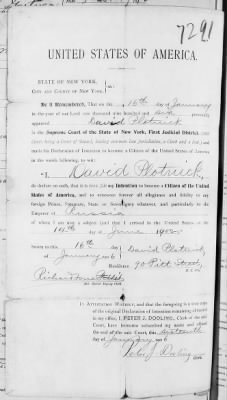 7291
UNITED STATES OF AMERICA.
STATE OF NEW YORK,
CITY AND COUNTY OF NEW YORK,
Be it Remembered, That on the 16th day of January
in the year of our Lord one thousand nine hundred and six personally
appeared David Plotnick
in the Supreme Court of the State of New York, First Judicial District, (said
Court being a Court of Record, having common law jurisdiction, a Clerk and a Seal), and
made his Declaration of Intention to become a Citizen of the United States of America
in the words following, to wit:
I, David Plotnick
do declare on oath, that it is bona fide my Intention to become a Citizen of the United
States of America, and to renounce forever all allegiance and fidelity to any
foreign Prince, Potentate, State or Sovereignty whatever, and particularly to the
Emperor of Russia
of whom I am now a subject and that I arrived in the United States on the
day of June
Sworn to this 16th day of David Plotnick
January 1906
Residence 90 Pitt Street,
N. Y. City
IN ATTESTATION WHEREOF, and that the foregoing is a true copy
of the original Declaration of Intention remaining of record
in my office, I PETER J. DOOLING, Clerk of the said
Court, have hereunto subscribed my name and affixed
the seal of the said Court, this sixteenth
day of January 1906
Peter J. Dooling
Clerk